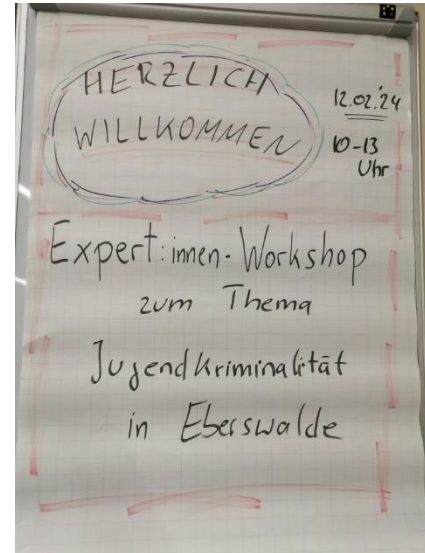 HERZLICH
WILLKOMMEN
12.02.'24
10-13
Uhr
Expert:innen-Workshop
zum Thema
Jugendkriminalität
in Eberswalde